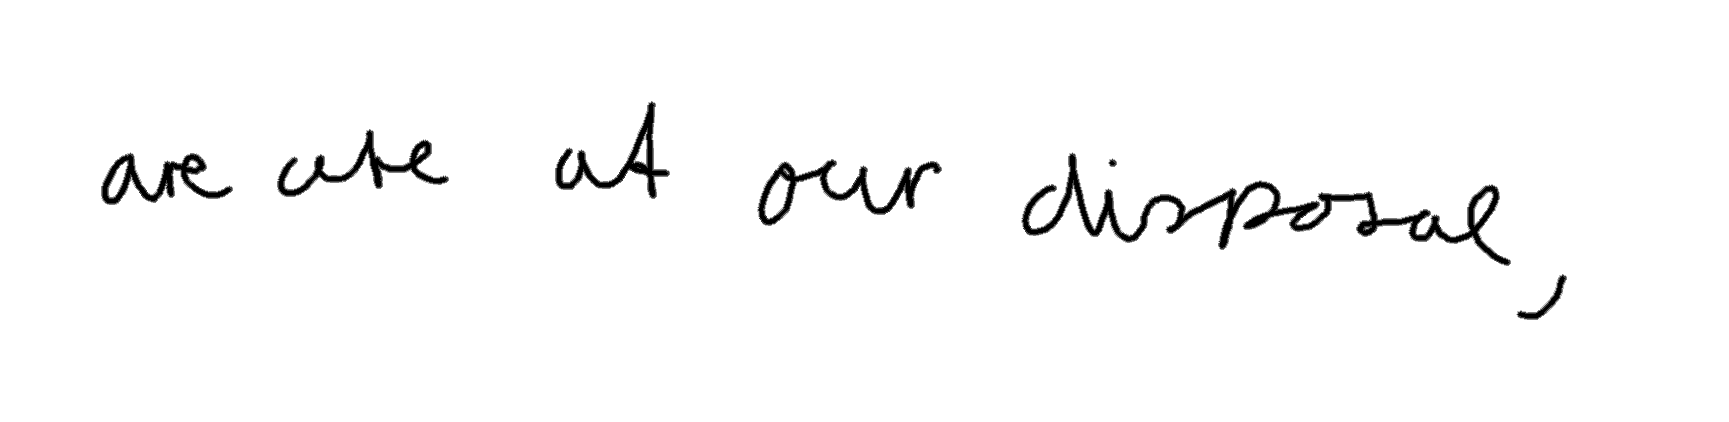 are are at our disposal,